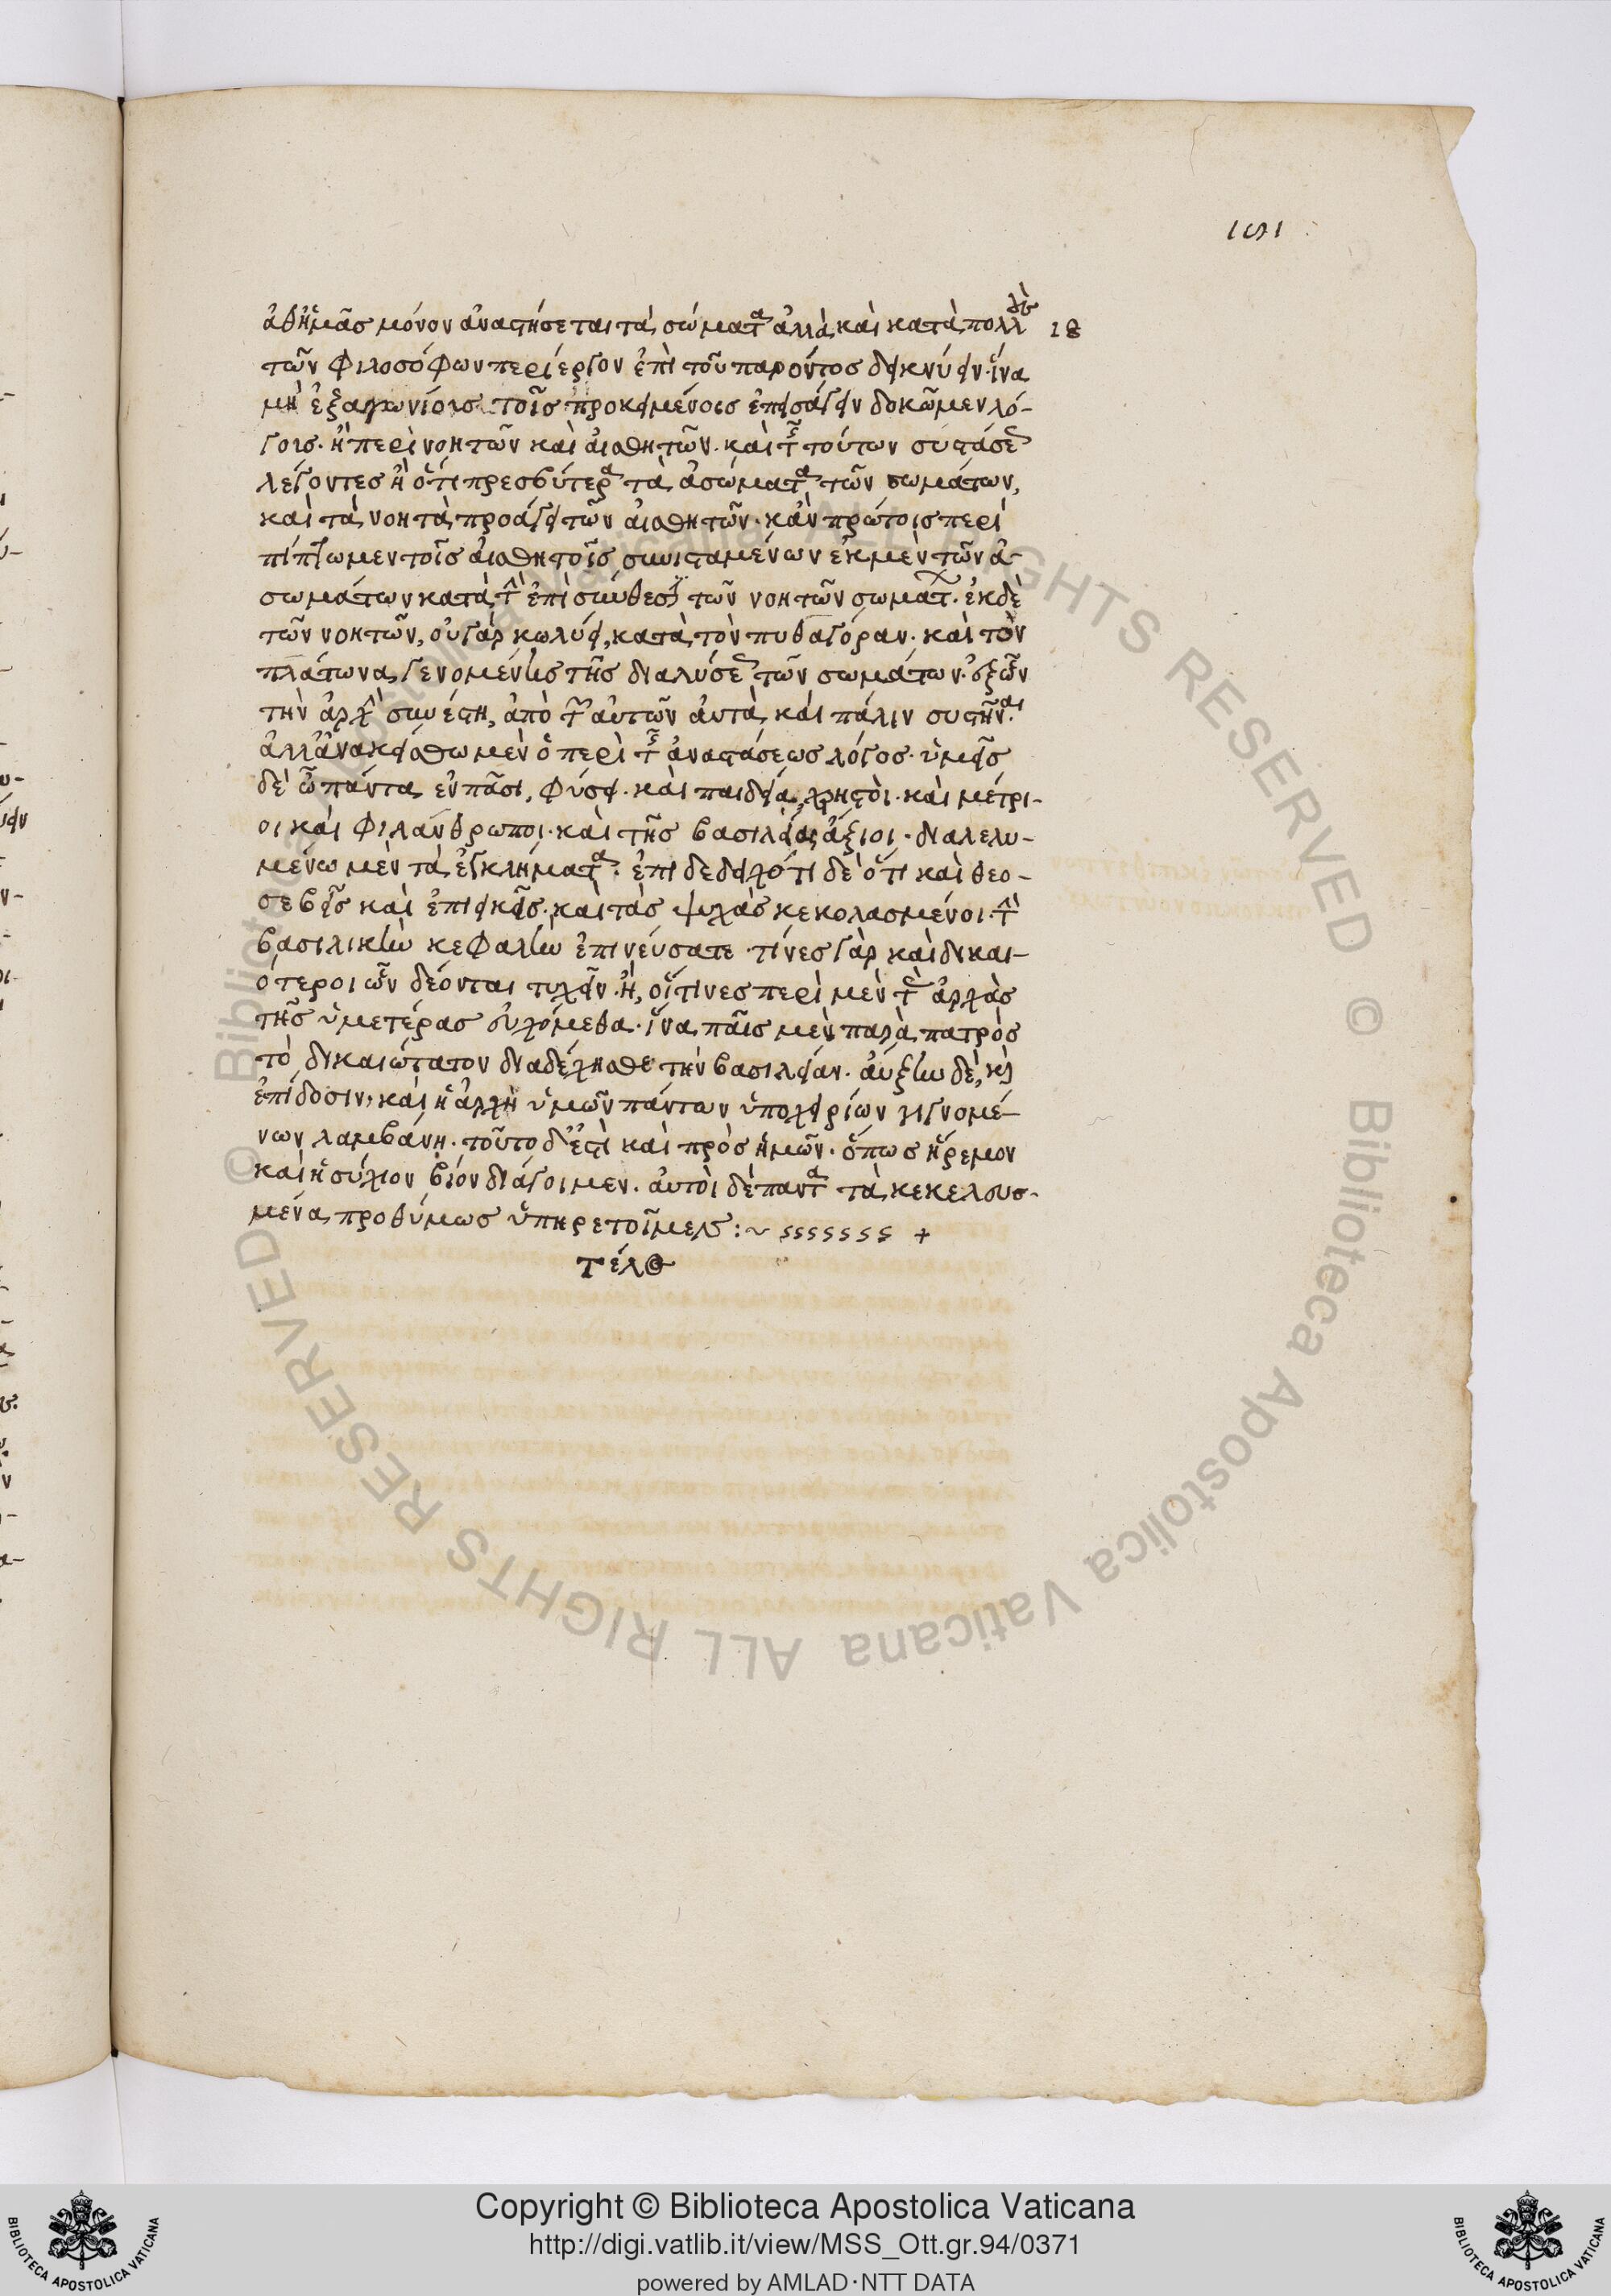 181
ἀθ' ἡμᾶς μόνον ἀναστήσεται τὰ σώματα ἀλλὰ καὶ κατὰ πολλοὺς 18
τῶν φιλοσόφων περίεργον ἐπὶ τοῦ παρόντος δεικνύειν· ἵνα
μὴ ἐξαγωνίοις τοῖς προκειμένοις ἐπεισάγειν δοκῶμεν λό-
γοις. ἢ περὶ νοητῶν καὶ αἰσθητῶν. καὶ τῆς τούτων συστάσεως
λέγοντες ἢ ὅτι πρεσβύτερα τὰ ἀσώματα τῶν σωμάτων,
καὶ τὰ νοητὰ προάγει τῶν αἰσθητῶν· κἂν πρώτοις περὶ
πίπτωμεν τοῖς αἰσθητοῖς συνισταμένων ἐκ μὲν τῶν ἀ-
σωμάτων κατὰ τὴν ἐπισύνθεσιν τῶν νοητῶν σωμάτων. ἐκ δὲ
τῶν νοητῶν, οὐ γὰρ κωλύει, κατὰ τὸν πυθαγόραν. καὶ τὸν
πλάτωνα, γενομένης τῆς διαλύσεως τῶν σωμάτων. ἐξ ὧν
τὴν ἀρχὴν συνέστη, ἀπὸ τῶν αὐτῶν αὐτὰ, καὶ πάλιν συστῆναι.
ἀλλ' ἀνακείσθω μὲν ὁ περὶ τῆς ἀναστάσεως λόγος. ὑμεῖς
δὲ ὦ πάντα ἐν πᾶσι, φύσει. καὶ παιδείᾳ, χρηστοὶ. καὶ μέτρι-
οι καὶ φιλάνθρωποι. καὶ τῆς βασιλείας ἄξιοι. διαλελυ-
μένω μὲν τὰ ἐγκλήματα. ἐπιδεδειχότι δὲ ὅτι καὶ θεο-
σεβεῖς καὶ ἐπιεικεῖς. καὶ τὰς ψυχὰς κεκολασμένοι. τὴν
βασιλικὴν κεφαλὴν ἐπινεύσατε. τίνες γὰρ καὶ δικαι-
ότεροι ὧν δέονται τυχεῖν. ἢ, οἵτινες περὶ μὲν τῆς ἀρχὰς
τῆς ὑμετέρας εὐχόμεθα. ἵνα παῖς μὲν παρὰ πατρὸς
τὸ δικαιώτατον διαδέχησθε τὴν βασιλείαν. αὔξην δὲ, καὶ
ἐπίδοσιν, καὶ ἡ ἀρχὴ ὑμῶν πάντων ὑποχειρίων γιγνομέ-
νων λαμβάνῃ. τοῦτο δ' ἐστὶ καὶ πρὸς ἡμῶν. ὅπως ἤρεμον
καὶ ἡσύχιον βίον διάγοιμεν. αὐτοὶ δὲ πάντα τὰ κεκελευσ-
μένα προθύμως ὑπηρετοῖμεν :~ sssssss +
Τέλος
Copyright © Biblioteca Apostolica Vaticana
http://digi.vatlib.it/view/MSS_Ott.gr.94/0371
powered by AMLAD·NTT DATA
© Biblioteca Apostolica Vaticana ALL RIGHTS RESERVED
© Biblioteca Apostolica Vaticana ALL RIGHTS RESERVED
BIBLIOTECA APOSTOLICA VATICANA
BIBLIOTECA APOSTOLICA VATICANA